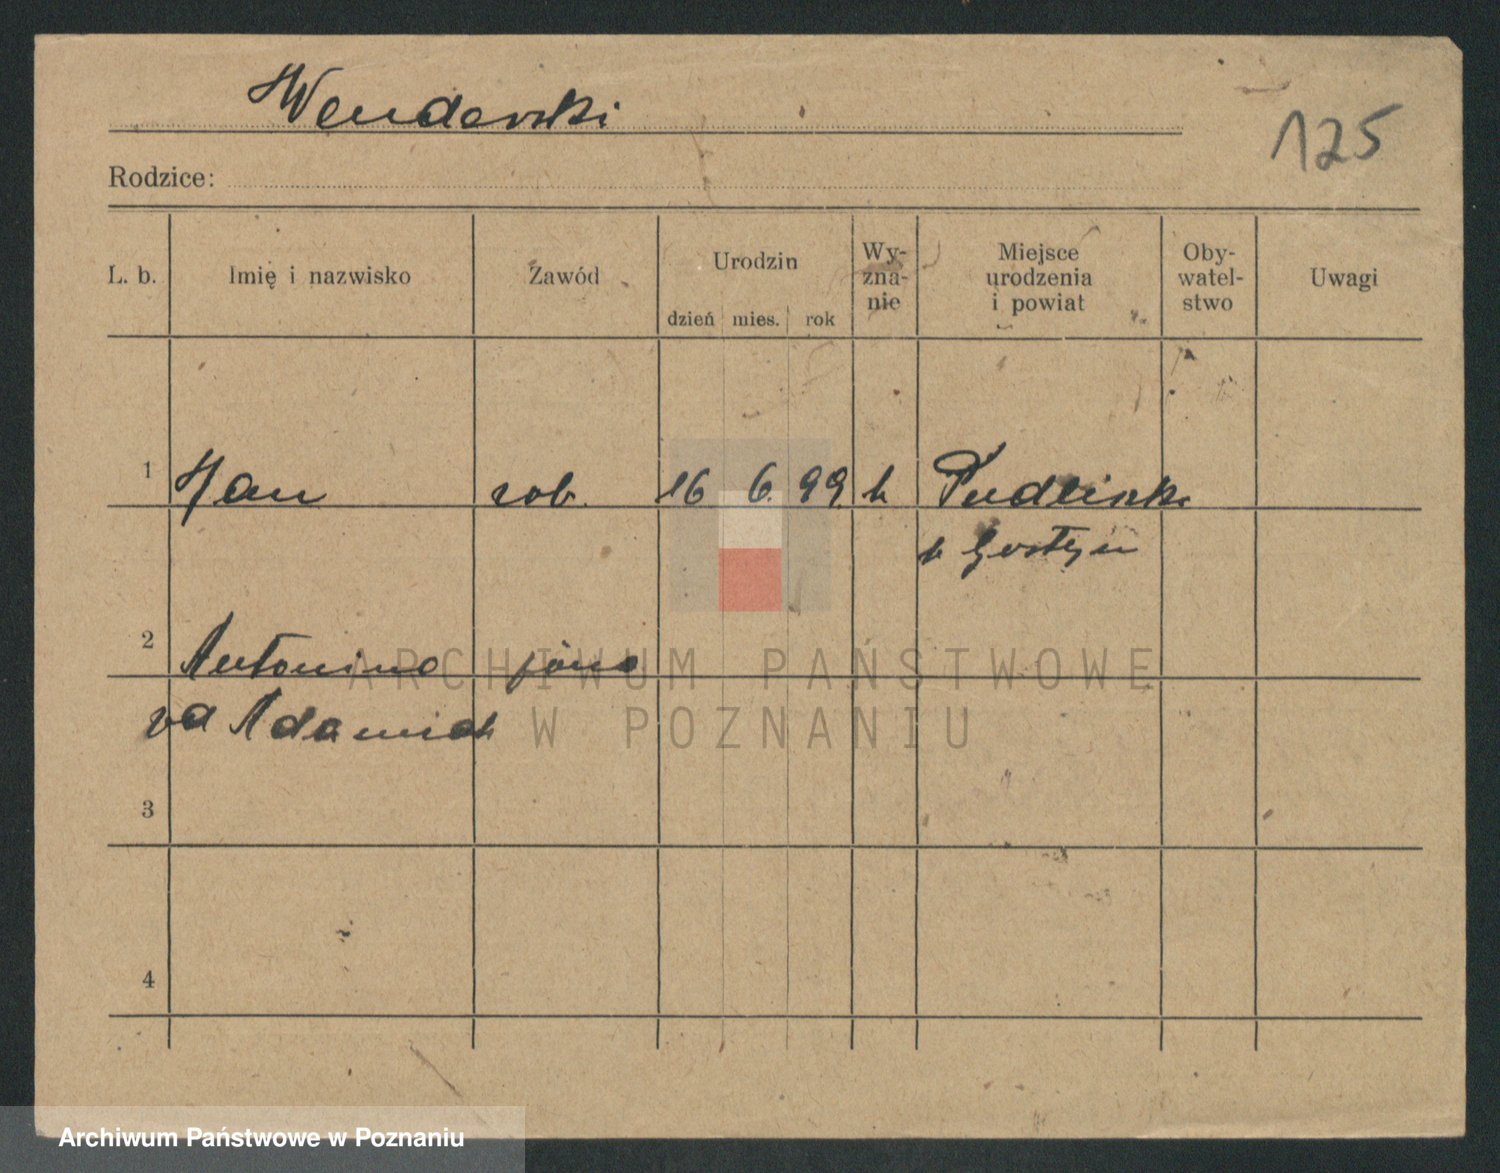 Wenderski
125
Rodzice:
L. b. Imię i nazwisko Zawód Urodzin dzień mies. rok Wy-zna-nie Miejsce urodzenia i powiat Oby-watel-stwo Uwagi
1 Jan rob. 16 6. 99. k Pudliszki
k Gostyn
2 Antonina żona
zd Adamiak
3
4
ARCHIWUM PAŃSTWOWE
W POZNANIU
Archiwum Państwowe w Poznaniu